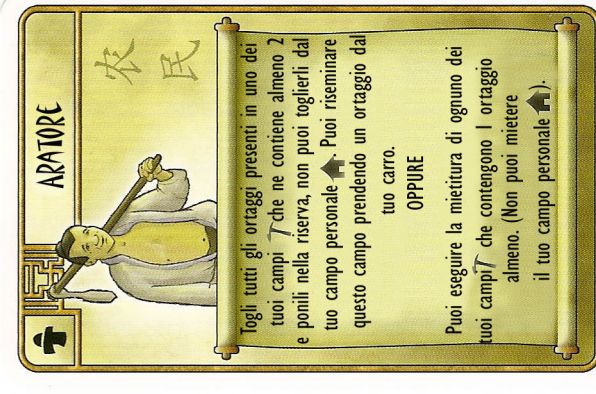 ARATORE
农
民
Togli tutti gli ortaggi presenti in uno dei
tuoi campi che ne contiene almeno 2
e ponili nella riserva, non puoi toglierli dal
tuo campo personale . Puoi riseminare
questo campo prendendo un ortaggio dal
tuo carro.
OPPURE
Puoi eseguire la mietitura di ognuno dei
tuoi campi che contengono 1 ortaggio
almeno. (Non puoi mietere
il tuo campo personale ).